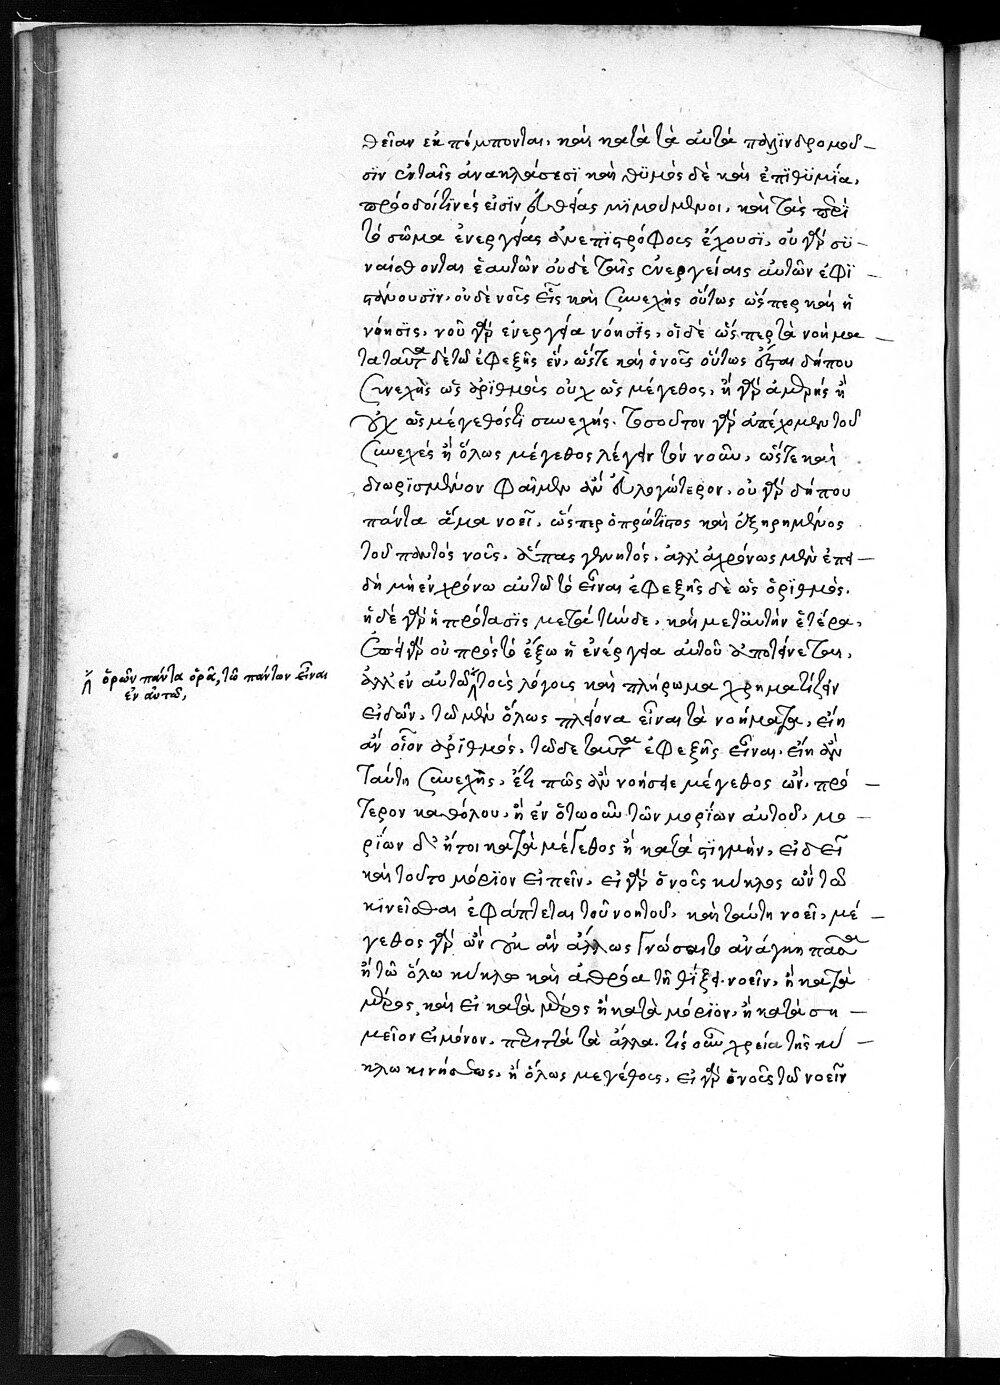 θεῖαν ἐκπέμπονται, καὶ κατὰ τὰ αὐτὰ παλινδρομοῦ
σϊν ἐνταῖς ἀνακλάσεσϊ καὶ θϋμὸς δὲ καὶ ἐπϊθϋμία,
πρόοδοί τινές εἰσϊν εὐθείας μϊμούμεναι, καὶ τὰς περὶ
τὸ σῶμα ἐνεργείας ἀνεπιστρόφους ἔχουσϊ, οὐ γὰρ σϋ
ναίσθονται ἑαυτῶν οὐδὲ ταῖς ἐνεργείαις αὐτῶν ἐφϊ
στάνουσϊν, οὐδὲ νοῦς εἷς καὶ συνεχὴς οὕτως ὥσπερ καὶ ἡ
νόησϊς, νοῦ γὰρ ἐνέργεια νόησϊς, οἱ δὲ ὥσπερ τὰ νοήμα
τα ταῦτα δὲ τῶ ἐφεξῆς ἕν, ὥστε καὶ ὁ νοῦς οὕτως ἔσται δήπου
συνεχὴς ὡς ἀρϊθμὸς οὐχ ὡς μέγεθος, ἢ γὰρ ἀμερὴς ἢ
οὐχ ὡς μέγεθός τι συνεχής. τοσοῦτον γὰρ ἀπέχομεν τοῦ
συνεχὲς ἢ ὅλως μέγεθος λέγειν τὸν νοῦν, ὥστε καὶ
διωρϊσμένον φαῖμεν ἂν εὐλογώτερον, οὐ γὰρ δήπου
πάντα ἅμα νοεῖ, ὥσπερ ὁ πρώτϊστος καὶ ἐξηρημένος
τοῦ παντὸς νοῦς, ὁ ἅπας γεννητός, ἀλλ' ἀχρόνως μὲν ἐπει
δὴ μὴ ἐν χρόνω αὐτῶ τὸ εἶναι ἐφεξῆς δὲ ὡς ἀρϊθμός.
ἥδε γὰρ ἡ πρότασϊς μετὰ τήνδε, καὶ μετ' αὐτὴν ἑτέρα,
ἐπεὶ γὰρ οὐ πρὸς τὸ ἔξω ἡ ἐνέργεια αὐτοῦ ἀποτείνεται,
ἀλλ' ἐν αὐτῶ τοῖς λόγοις καὶ πλήρωμα χρηματίζειν
εἰδῶν, τῶ μὲν ὅλως πλείονα εἶναι τὰ νοήματα, εἴη
ἂν οἷον ἀρϊθμός, τῶ δὲ ταῦτα ἐφεξῆς εἶναι, εἴη ἂν
ταύτη συνεχής, ἔτι πῶς ἂν νοήσειε μέγεθος ὤν, πρό
τερον καθόλου, ἢ ἐν ὁτωοῦν τῶν μορίων αὐτοῦ, μο
ρίων δ' ἤτοι κατὰ μέγεθος ἢ κατὰ στϊγμήν, εἰ δεῖ
καὶ τοῦτο μόρϊον εἰπεῖν, εἰ γὰρ ὁ νοῦς κύκλος ὢν τῶ
κϊνεῖσθαι ἐφάπτεται τοῦ νοητοῦ, καὶ ταύτη νοεῖ, μέ
γεθος γὰρ ὢν οὐκ ἂν ἄλλως γνώσαιτο ἀνάγκη πᾶσα
ἢ τῶ ὅλω κύκλω καὶ ἀθρόα τῆ θίξει νοεῖν, ἢ κατὰ
μέρος, καὶ εἰ κατὰ μέρος ἢ κατὰ μόρϊον, ἢ κατὰ ση
μεῖον εἰ μόνον, περιττὰ τὰ ἄλλα. τίς οὖν χρεία τῆς κύ
κλω κινήσεως, ἢ ὅλως μεγέθους, εἰ γὰρ ὁ νοῦς τῶ νοεῖν
ἢ ὁρῶν πάντα ὁρᾶ, τῶ πάντων εἶναι
ἐν αὐτῶ,